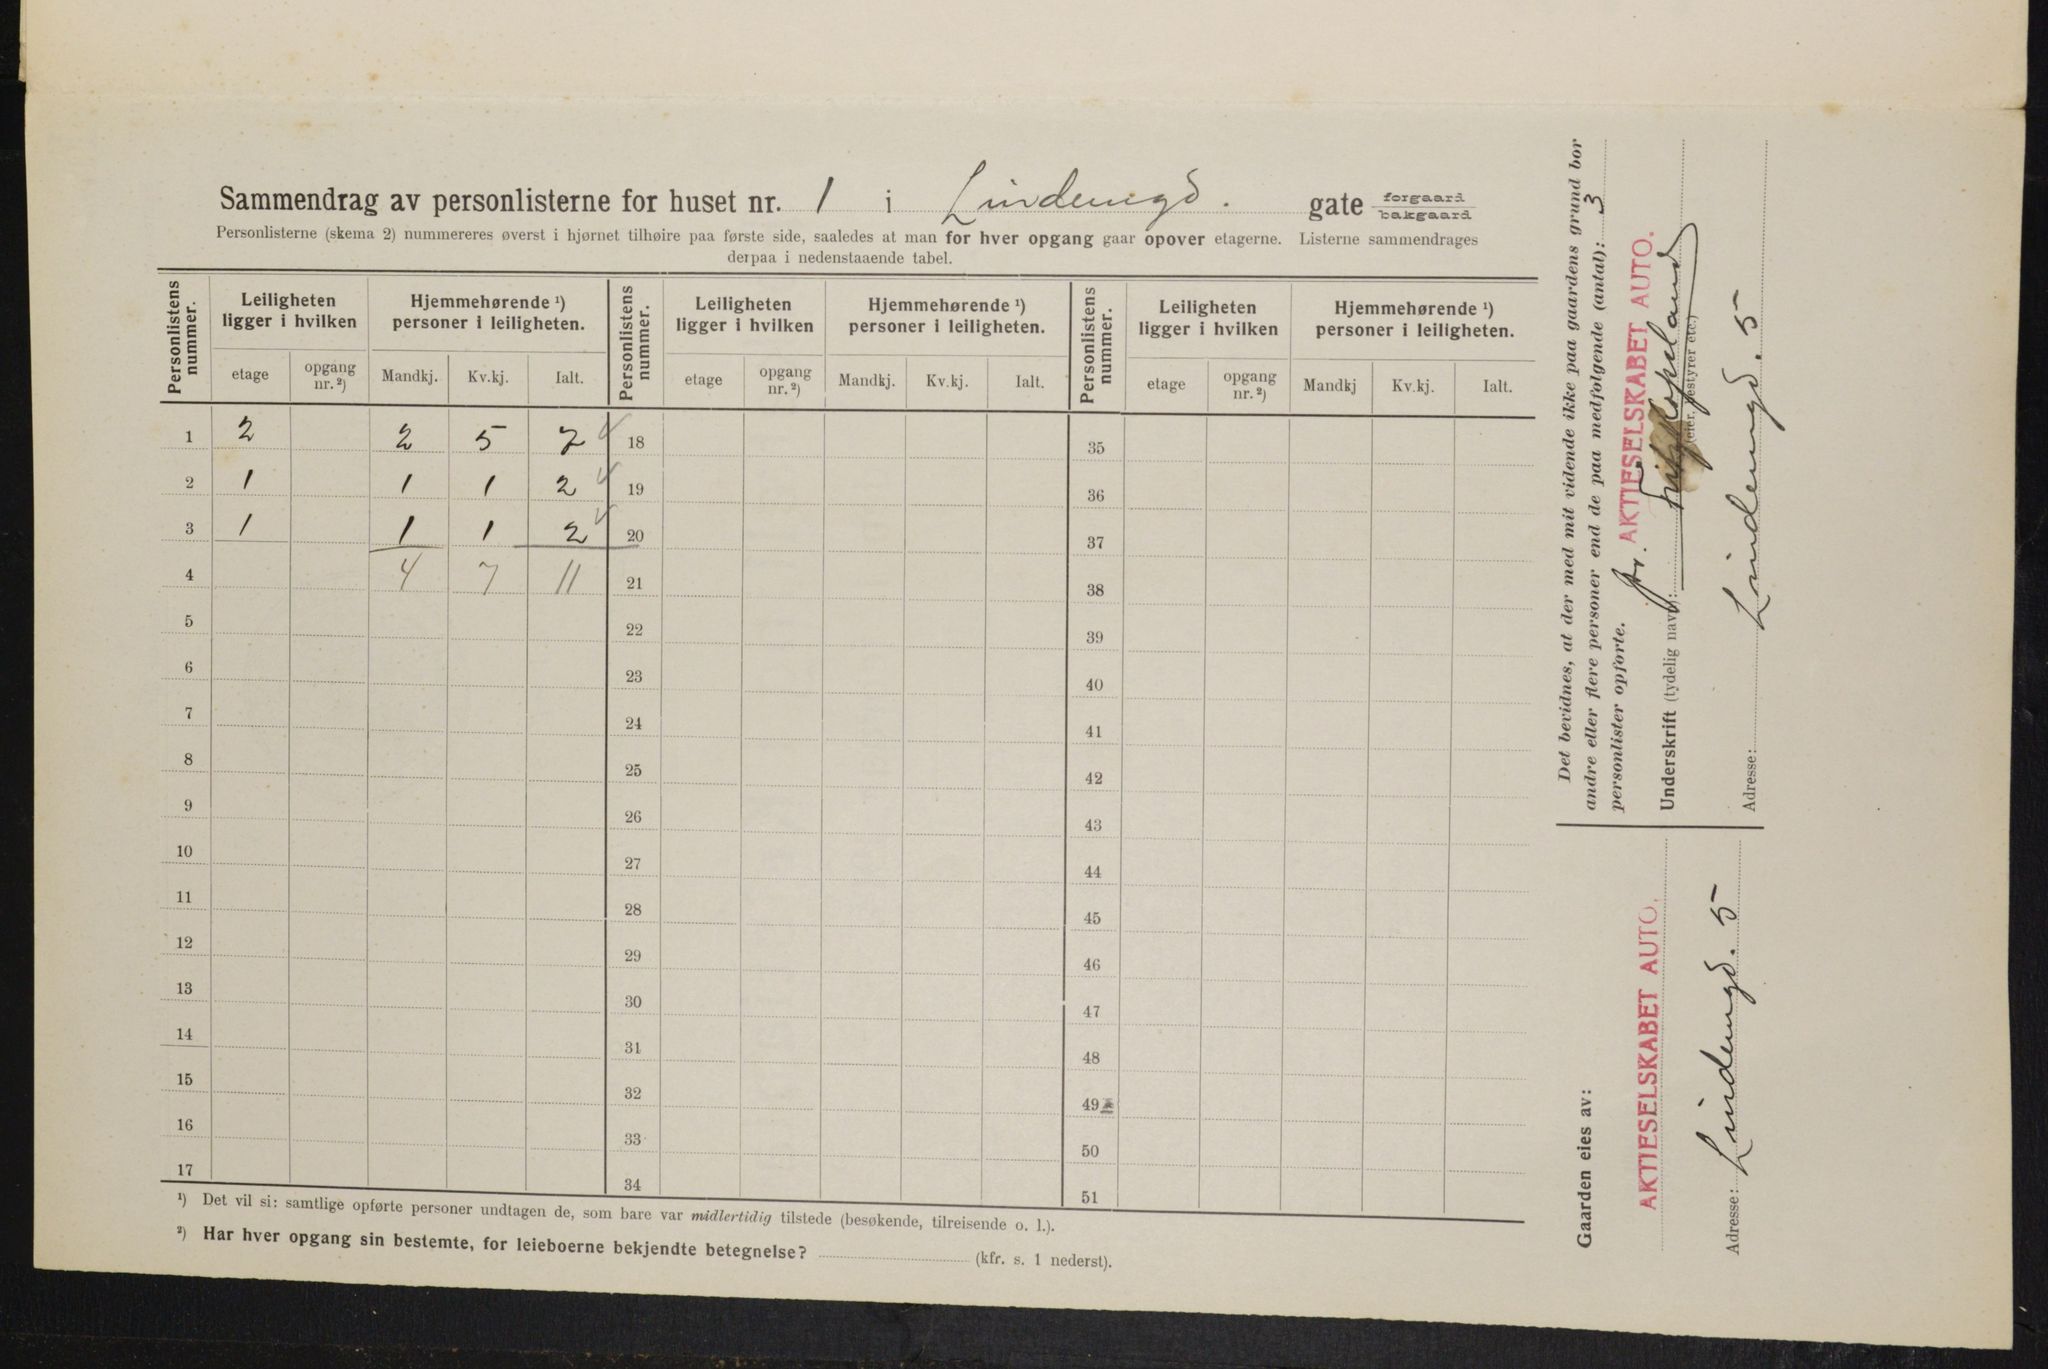 Sammendrag av personlisterne for huset nr. 1 i Lindemgd. gate forgaard bakgaard
Personlisterne (skema 2) nummereres øverst i hjørnet tilhøire paa første side, saaledes at man for hver opgang gaar opover etagerne. Listerne sammendrages
derpaa i nedenstaaende tabel.
Personlistens nummer. Leiligheten ligger i hvilken Hjemmehørende ¹) personer i leiligheten. Personlistens nummer. Leiligheten ligger i hvilken Hjemmehørende ¹) personer i leiligheten. Personlistens nummer. Leiligheten ligger i hvilken Hjemmehørende ¹) personer i leiligheten.
etage opgang nr. ²) Mandkj. Kv.kj. Ialt. etage opgang nr. ²) Mandkj. Kv.kj. Ialt. etage opgang nr. ²) Mandkj Kv.kj. Ialt.
1 2 2 5 7 18 35
2 1 1 1 2 19 36
3 1 1 1 2 20 37
4 4 7 11 21 38
5 22 39
6 23 40
7 24 41
8 25 42
9 26 43
10 27 44
11 28 45
12 29 46
13 30 47
14 31 48
15 32 49
16 33 50
17 34 51
¹) Det vil si: samtlige opførte personer undtagen de, som bare var midlertidig tilstede (besøkende, tilreisende o. l.).
²) Har hver opgang sin bestemte, for leieboerne bekjendte betegnelse? (kfr. s. 1 nederst).
Det bevidnes, at der med mit vidende ikke paa gaardens grund bor
andre eller flere personer end de paa medfølgende (antal): 3
personlister opførte.
pr. AKTIESELSKABET AUTO.
Underskrift (tydelig navn):
(eier, bestyrer etc.)
Adresse: Lindemgd. 5
Gaarden eies av:
AKTIESELSKABET AUTO.
Adresse: Lindemgd. 5